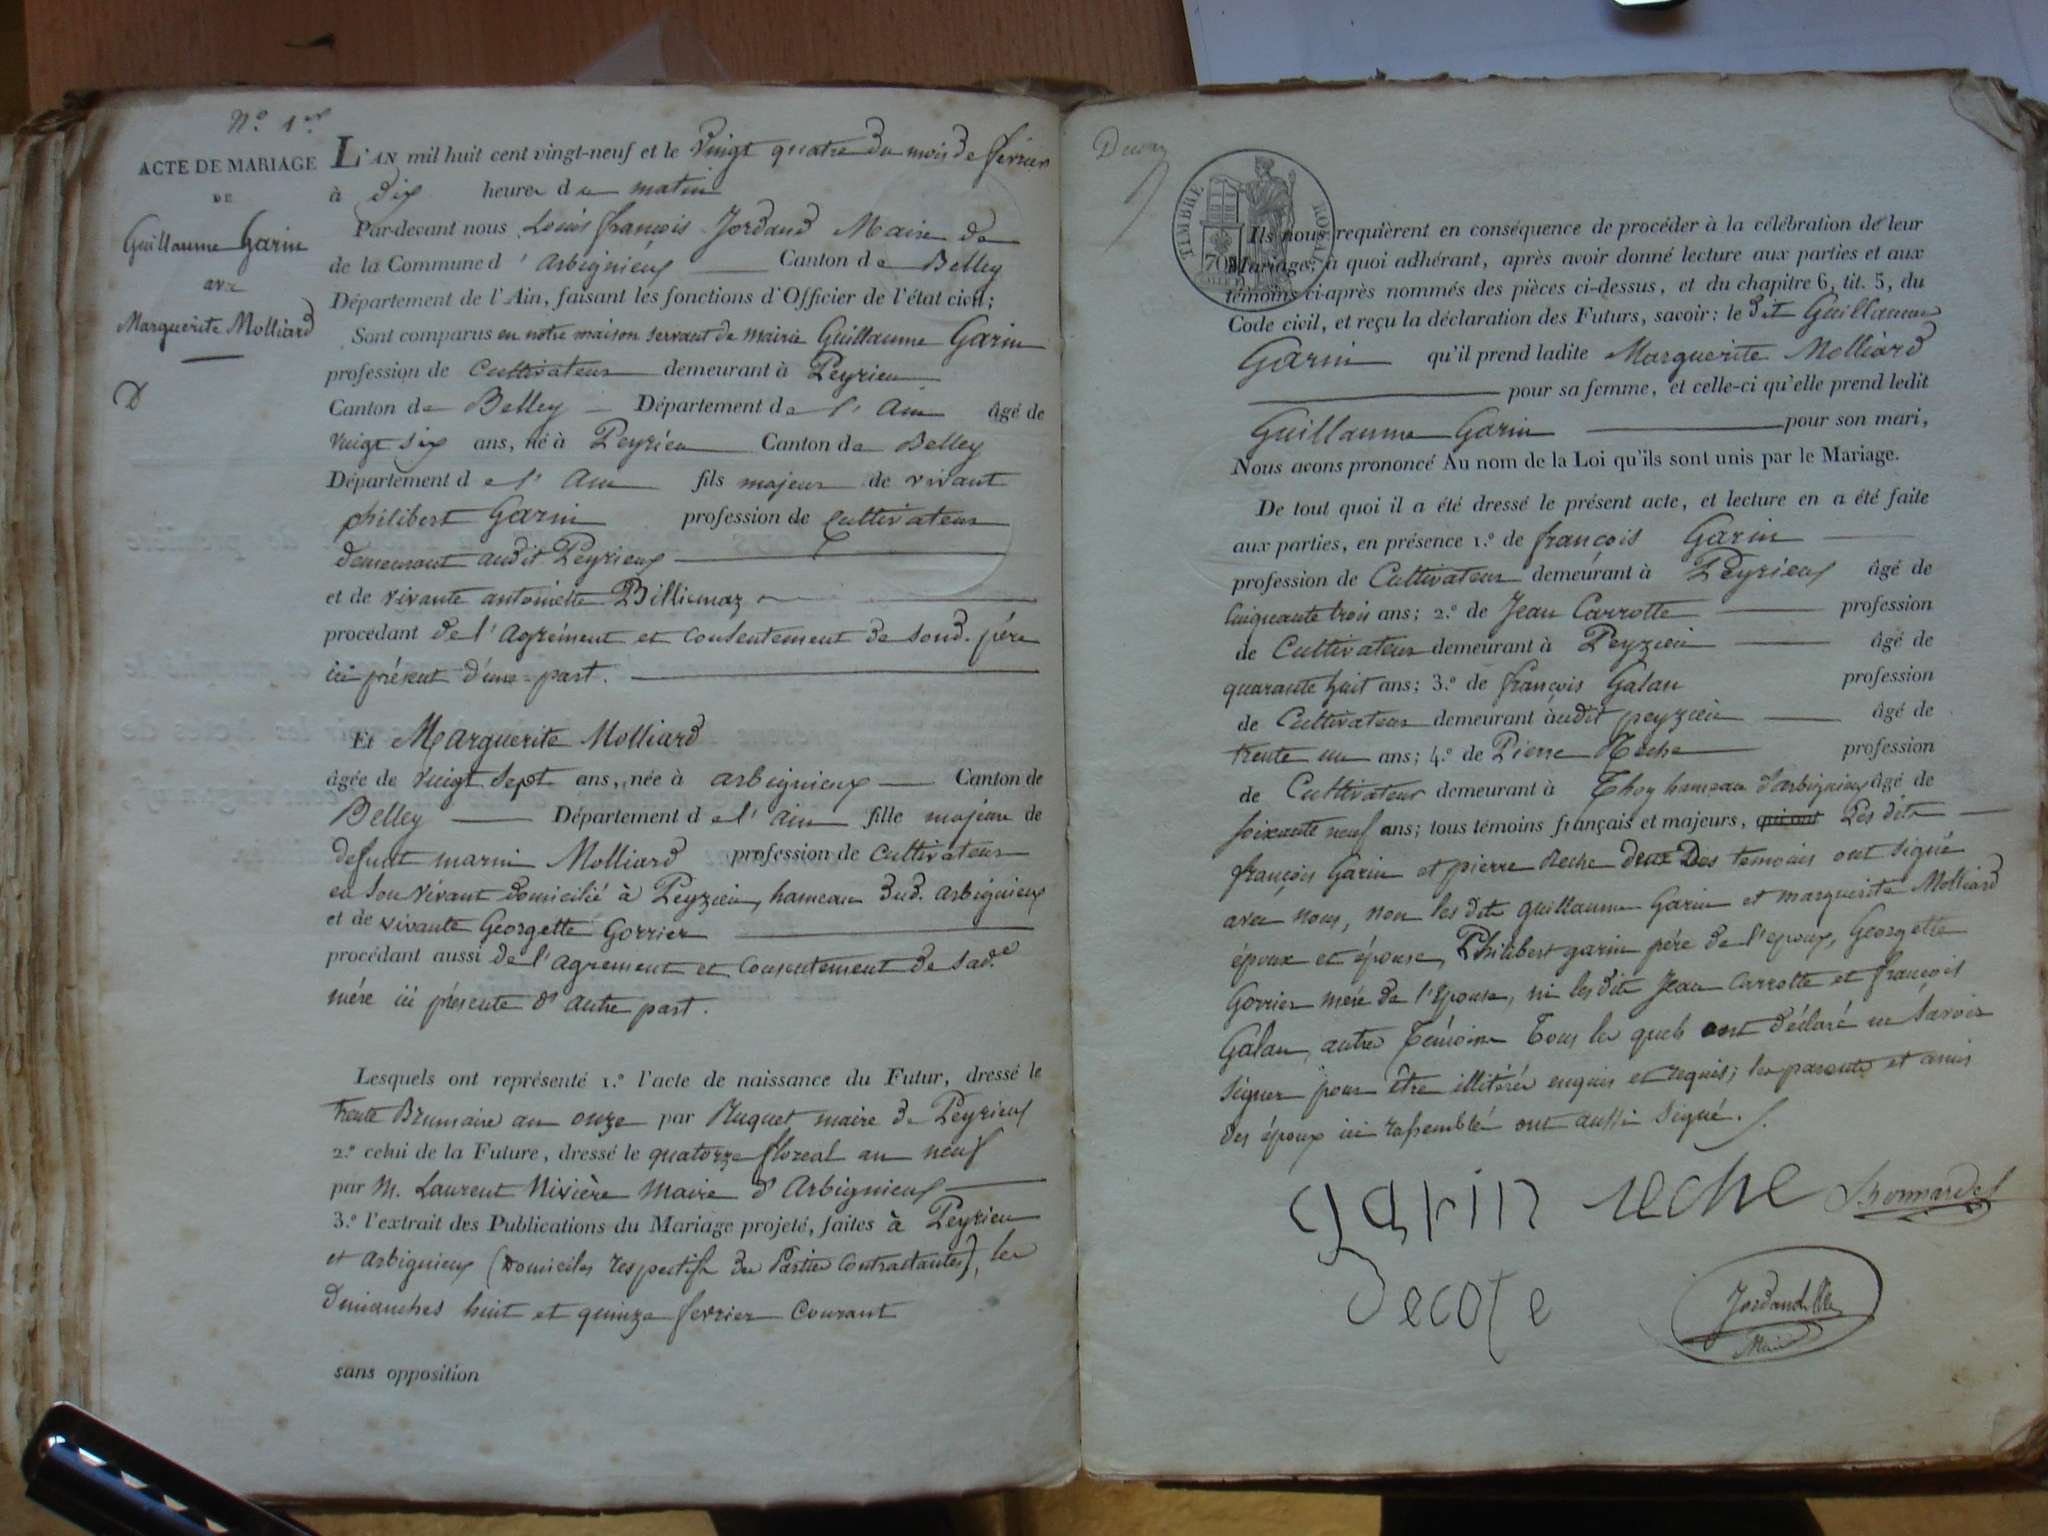 N.o 1er
ACTE DE MARIAGE
DE
Guillaume Garin
avec
Marguerite Molliard
D
L'AN mil huit cent vingt-neuf et le vingt quatre du mois de février
à dix heures du matin
Par-devant nous Louis françois Jordand Maire de
de la Commune d'arbignieux Canton de Belley
Département de l'Ain, faisant les fonctions d'Officier de l'état civil;
Sont comparus en notre maison servant de mairie Guillaume Garin
profession de Cultivateur demeurant à Peyrieu
Canton de Belley Département de l'ain âgé de
vingt six ans, né à Peyrieu Canton de Belley
Département de l'ain fils majeur de vivant
philibert Garin profession de Cultivateur
demeurant audit Peyrieux
et de vivante antoinette Billiemaz
procédant de l'agrément et consentement de sond. père
ici présent d'une part.
Et Marguerite Molliard
âgée de vingt sept ans, née à arbignieux Canton de
Belley Département de l'ain fille majeure de
defunt marin Molliard profession de cultivateur
en son vivant domicilié à Peyzieu, hameau dud. arbignieux
et de vivante Georgette Gorrier
procédant aussi de l'agrément et consentement de sade
mère ici présente d'autre part.
Lesquels ont représenté 1.o l'acte de naissance du Futur, dressé le
trente Brumaire an onze par Ruguet maire de Peyrieux
2.o celui de la Future, dressé le quatorze floreal an neuf
par M. Laurent Nivière maire d'Arbignieux
3.o l'extrait des Publications du Mariage projeté, faites à Peyrieu
et arbignieux (domiciles respectifs des Parties contractantes), les
dimanches huit et quinze fevrier courant
sans opposition
TIMBRE ROYAL
70
Ils nous requièrent en conséquence de procéder à la célébration de leur
Mariage; à quoi adhérant, après avoir donné lecture aux parties et aux
témoins ci-après nommés des pièces ci-dessus, et du chapitre 6, tit. 5, du
Code civil, et reçu la déclaration des Futurs, savoir: le dit Guillaume
Garin qu'il prend ladite Marguerite Molliard
pour sa femme, et celle-ci qu'elle prend ledit
Guillaume Garin pour son mari,
Nous avons prononcé Au nom de la Loi qu'ils sont unis par le Mariage.
De tout quoi il a été dressé le présent acte, et lecture en a été faite
aux parties, en présence 1.o de françois Garin
profession de Cultivateur demeurant à Peyrieux âgé de
Cinquante trois ans; 2.o de Jean Carrotte profession
de Cultivateur demeurant à Peyzieu âgé de
quarante huit ans; 3.o de françois Galan profession
de Cultivateur demeurant audit peyzieu âgé de
trente un ans; 4.o de Pierre Reche profession
de Cultivateur demeurant à Thoy hameau d'arbignieux âgé de
soixante neuf ans; tous témoins français et majeurs, qui ont Les dits
françois Garin et pierre Reche deux Des temoins ont signé
avec nous, non les dits guillaume Garin et marguerite Molliard
époux et épouse, Philibert garin père de l'epoux, Georgette
Gorrier mère de l'épouse, ni les dits Jean Carrotte et françois
Galan, autres témoins tous les quels ont déclaré ne savoir
signer pour être illitérés enquis et requis; les parents et amis
des époux ici rassemblé ont aussi signé.
garin reche Bonnardel
Decote
Jordand
Maire